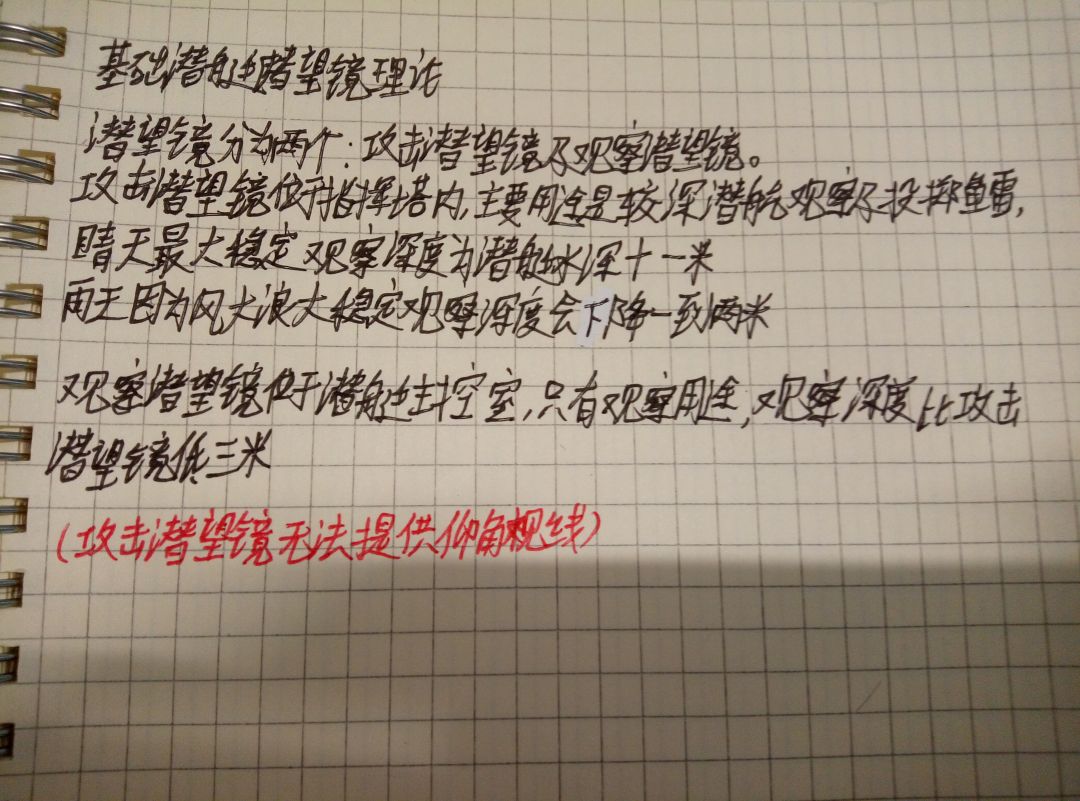 基础潜艇潜望镜理论
潜望镜分为两个:攻击潜望镜及观察潜望镜。
攻击潜望镜位于指挥塔内,主要用途是较深潜航观察及投掷鱼雷,
晴天最大稳定观察深度为潜艇水深十一米
雨天因为风大浪大稳定观察深度会下降一到两米
观察潜望镜位于潜艇主控室,只有观察用途,观察深度比攻击
潜望镜低三米
(攻击潜望镜无法提供仰角视线)